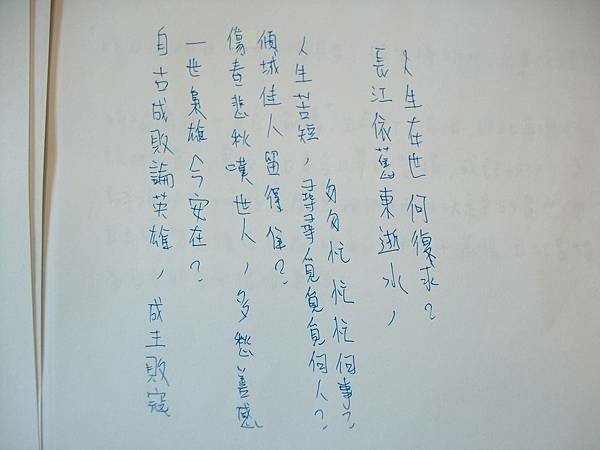 人生在世何復求？
長江依舊東逝水，
匆匆忙忙忙何事？
人生苦短，尋尋覓覓覓何人？
傾城佳人留得住？
傷春悲秋嘆世人，多愁善感
一世梟雄今安在？
自古成敗論英雄，成王敗寇